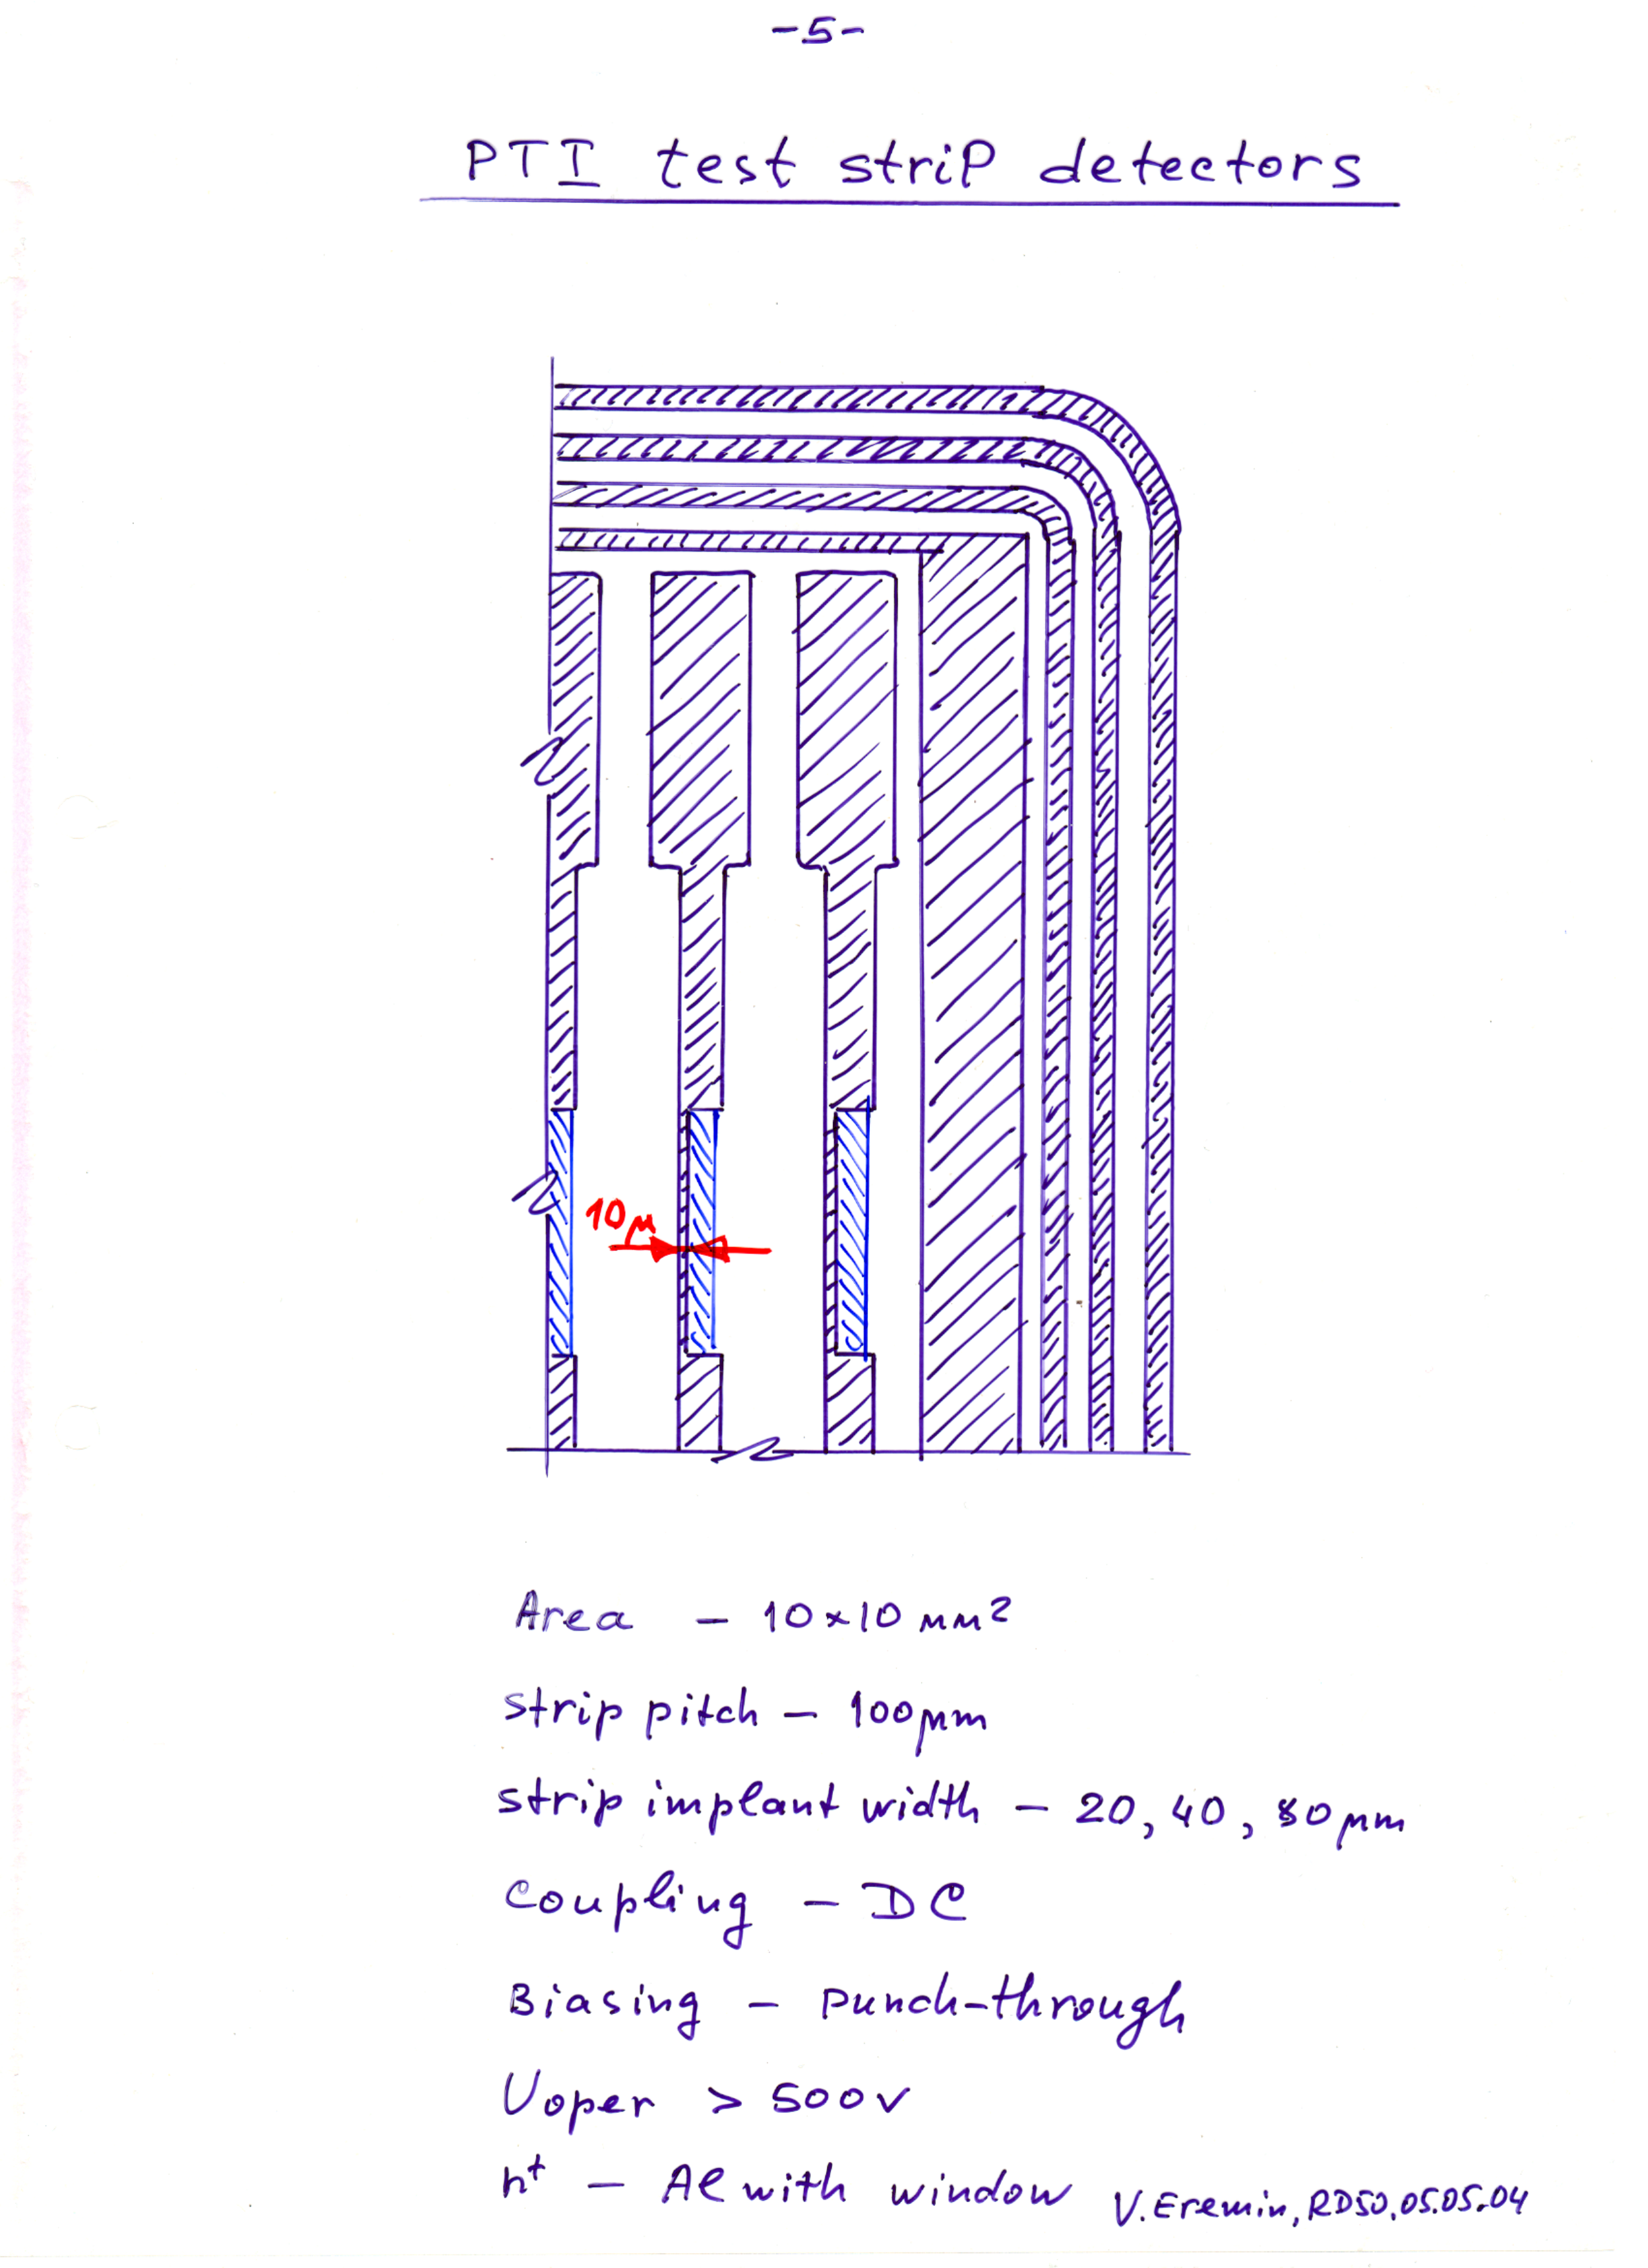 -5-
PTI test strip detectors
10μ
Area - 10×10 mm²
strip pitch - 100μm
strip implant width - 20, 40, 80μm
Coupling - DC
Biasing - punch-through
Uoper > 500v
n⁺ - Al with window
V. Eremin, RD50, 05.05.04